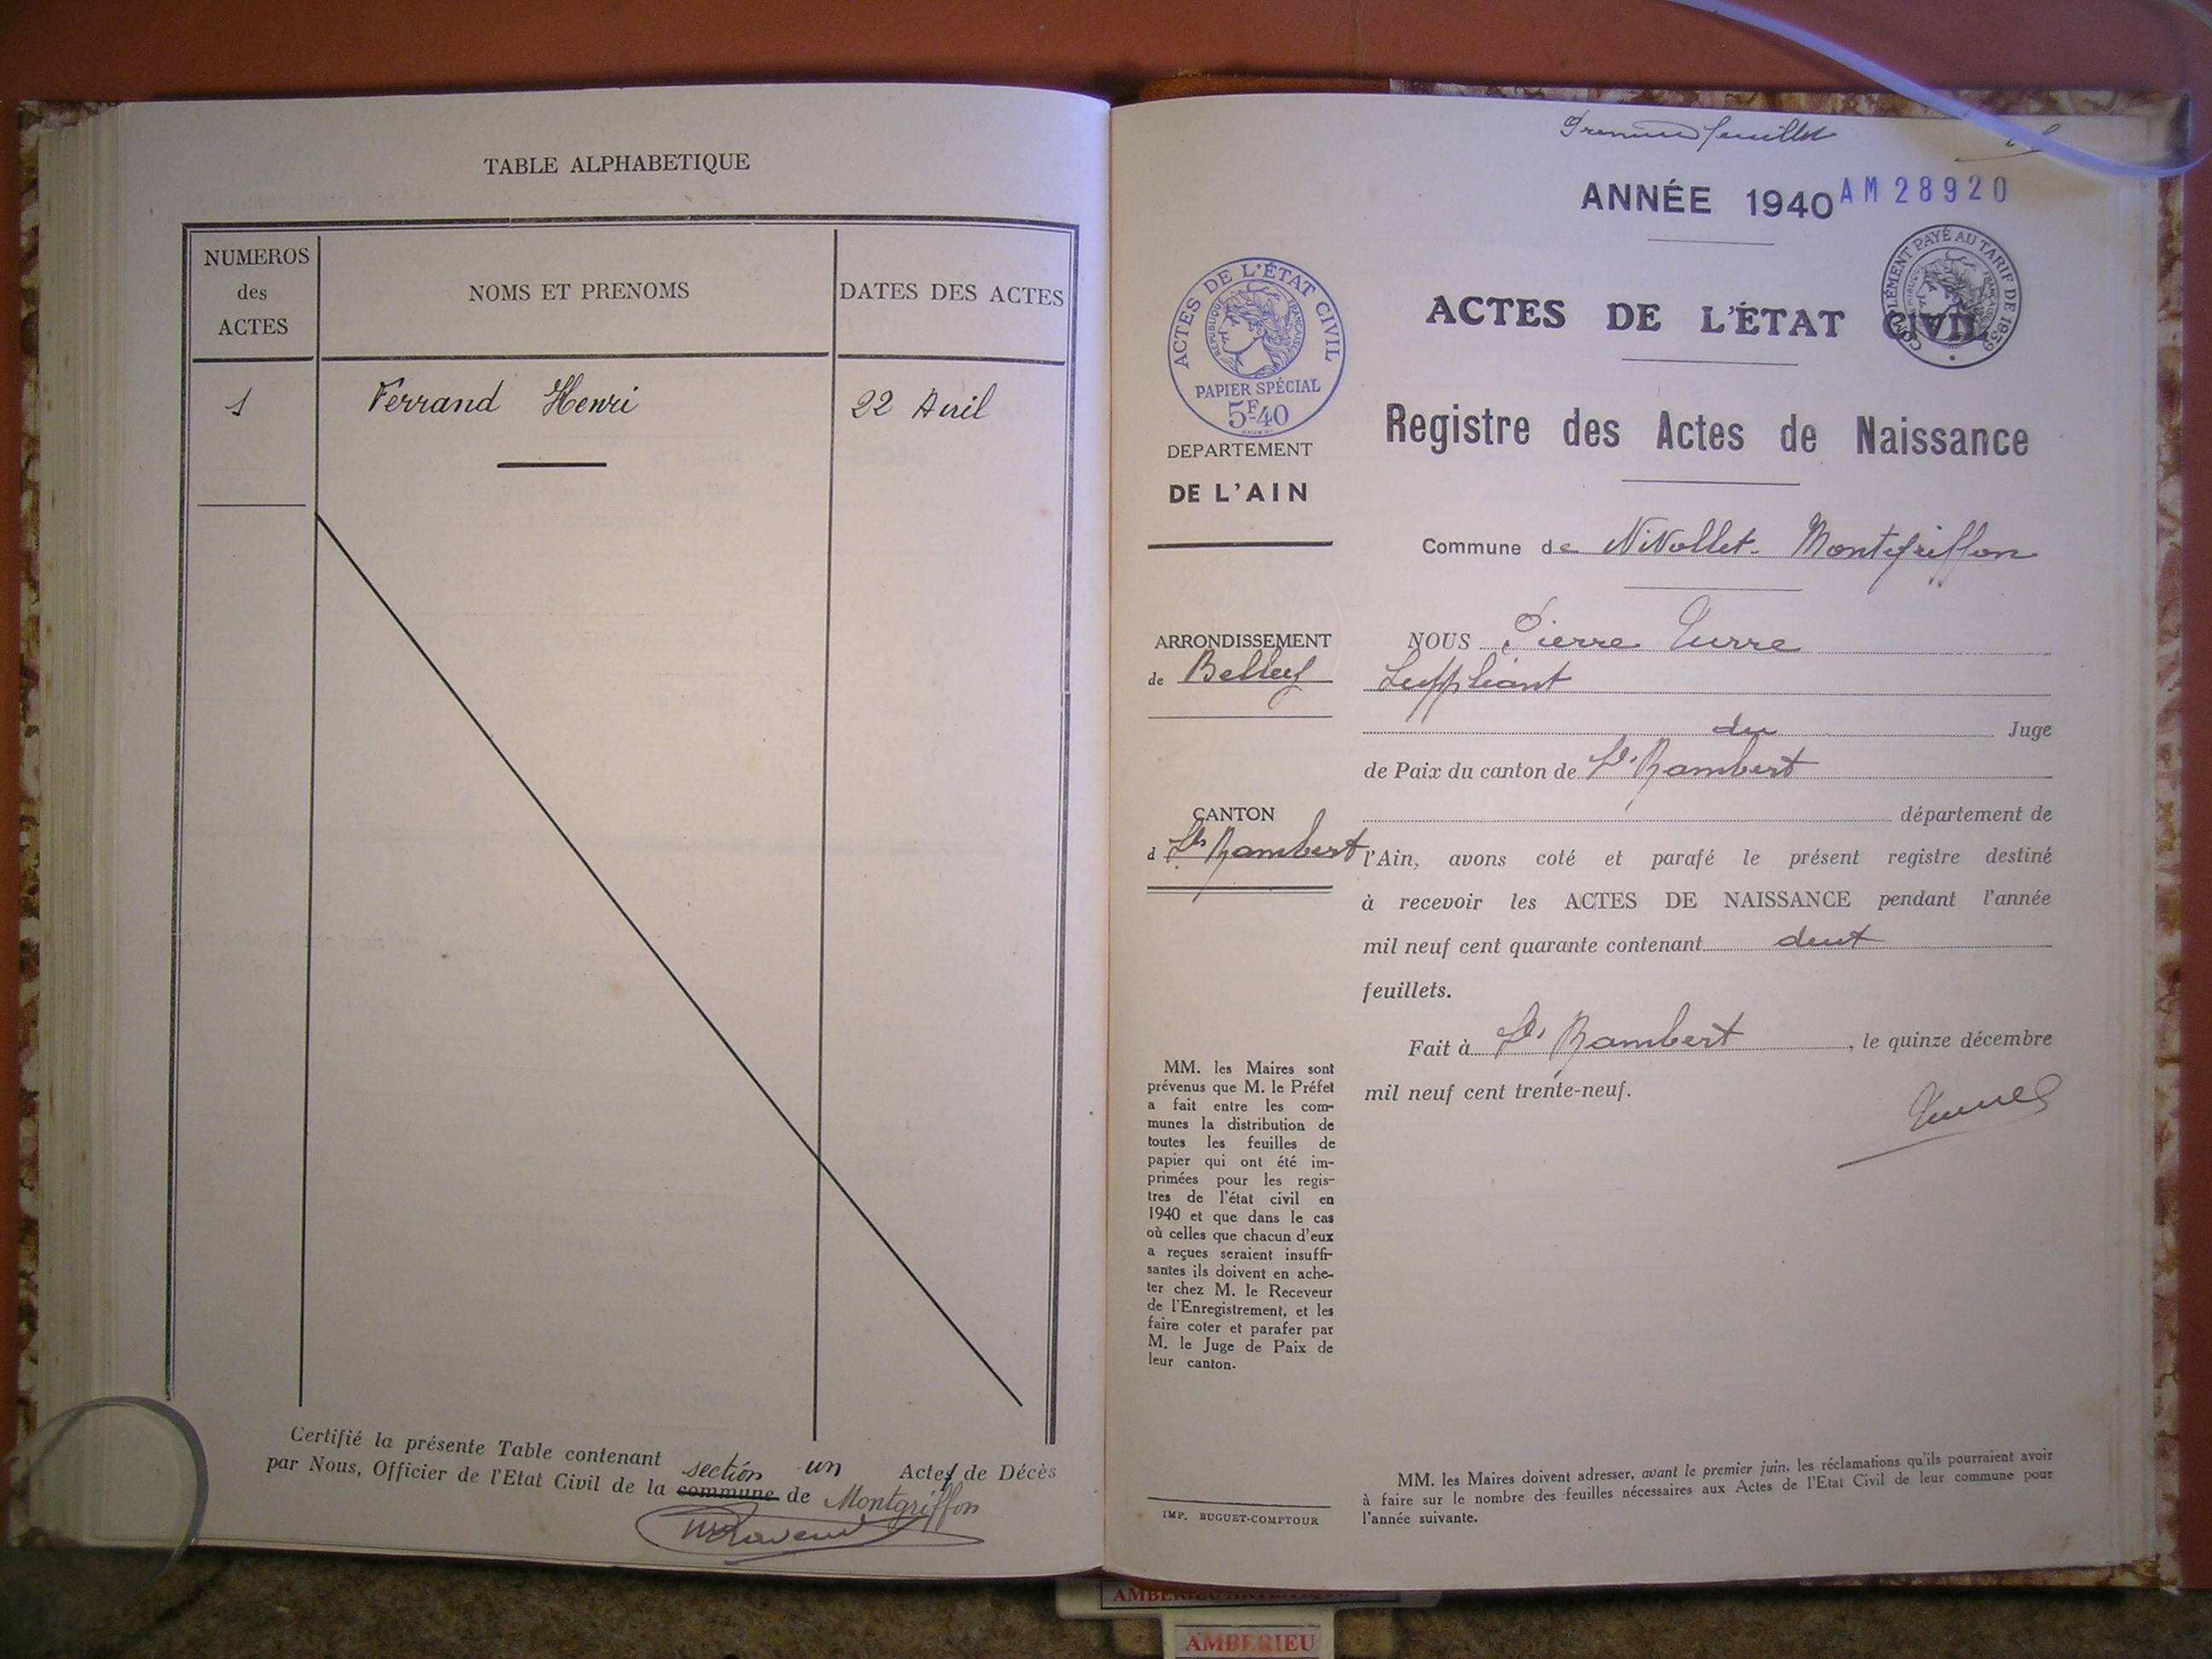 TABLE ALPHABETIQUE
NUMEROS
des
ACTES
NOMS ET PRENOMS
DATES DES ACTES
1
Ferrand Henri
22 Avril
Certifié la présente Table contenant un Actes de Décès
par Nous, Officier de l'Etat Civil de la commune section de Montgriffon
Premier feuillet
ANNÉE 1940
AM 28920
ACTES DE L'ÉTAT CIVIL
RÉPUBLIQUE FRANÇAISE
PAPIER SPÉCIAL
5F40
COMPLÉMENT PAYÉ AU TARIF DE 1939
DEPARTEMENT
DE L'AIN
ARRONDISSEMENT
de Belley
CANTON
d St Rambert
MM. les Maires sont
prévenus que M. le Préfet
a fait entre les com-
munes la distribution de
toutes les feuilles de
papier qui ont été im-
primées pour les regis-
tres de l'état civil en
1940 et que dans le cas
où celles que chacun d'eux
a reçues seraient insuffi-
santes ils doivent en ache-
ter chez M. le Receveur
de l'Enregistrement, et les
faire coter et parafer par
M. le Juge de Paix de
leur canton.
IMP. BUGUET-COMPTOUR
ACTES DE L'ÉTAT CIVIL
Registre des Actes de Naissance
Commune de Nivollet-Montgriffon
NOUS Pierre
Suppléant
du Juge
de Paix du canton de St Rambert
département de
l'Ain, avons coté et parafé le présent registre destiné
à recevoir les ACTES DE NAISSANCE pendant l'année
mil neuf cent quarante contenant deux
feuillets.
Fait à St Rambert, le quinze décembre
mil neuf cent trente-neuf.
MM. les Maires doivent adresser, avant le premier juin, les réclamations qu'ils pourraient avoir
à faire sur le nombre des feuilles nécessaires aux Actes de l'Etat Civil de leur commune pour
l'année suivante.
AMBERIEU